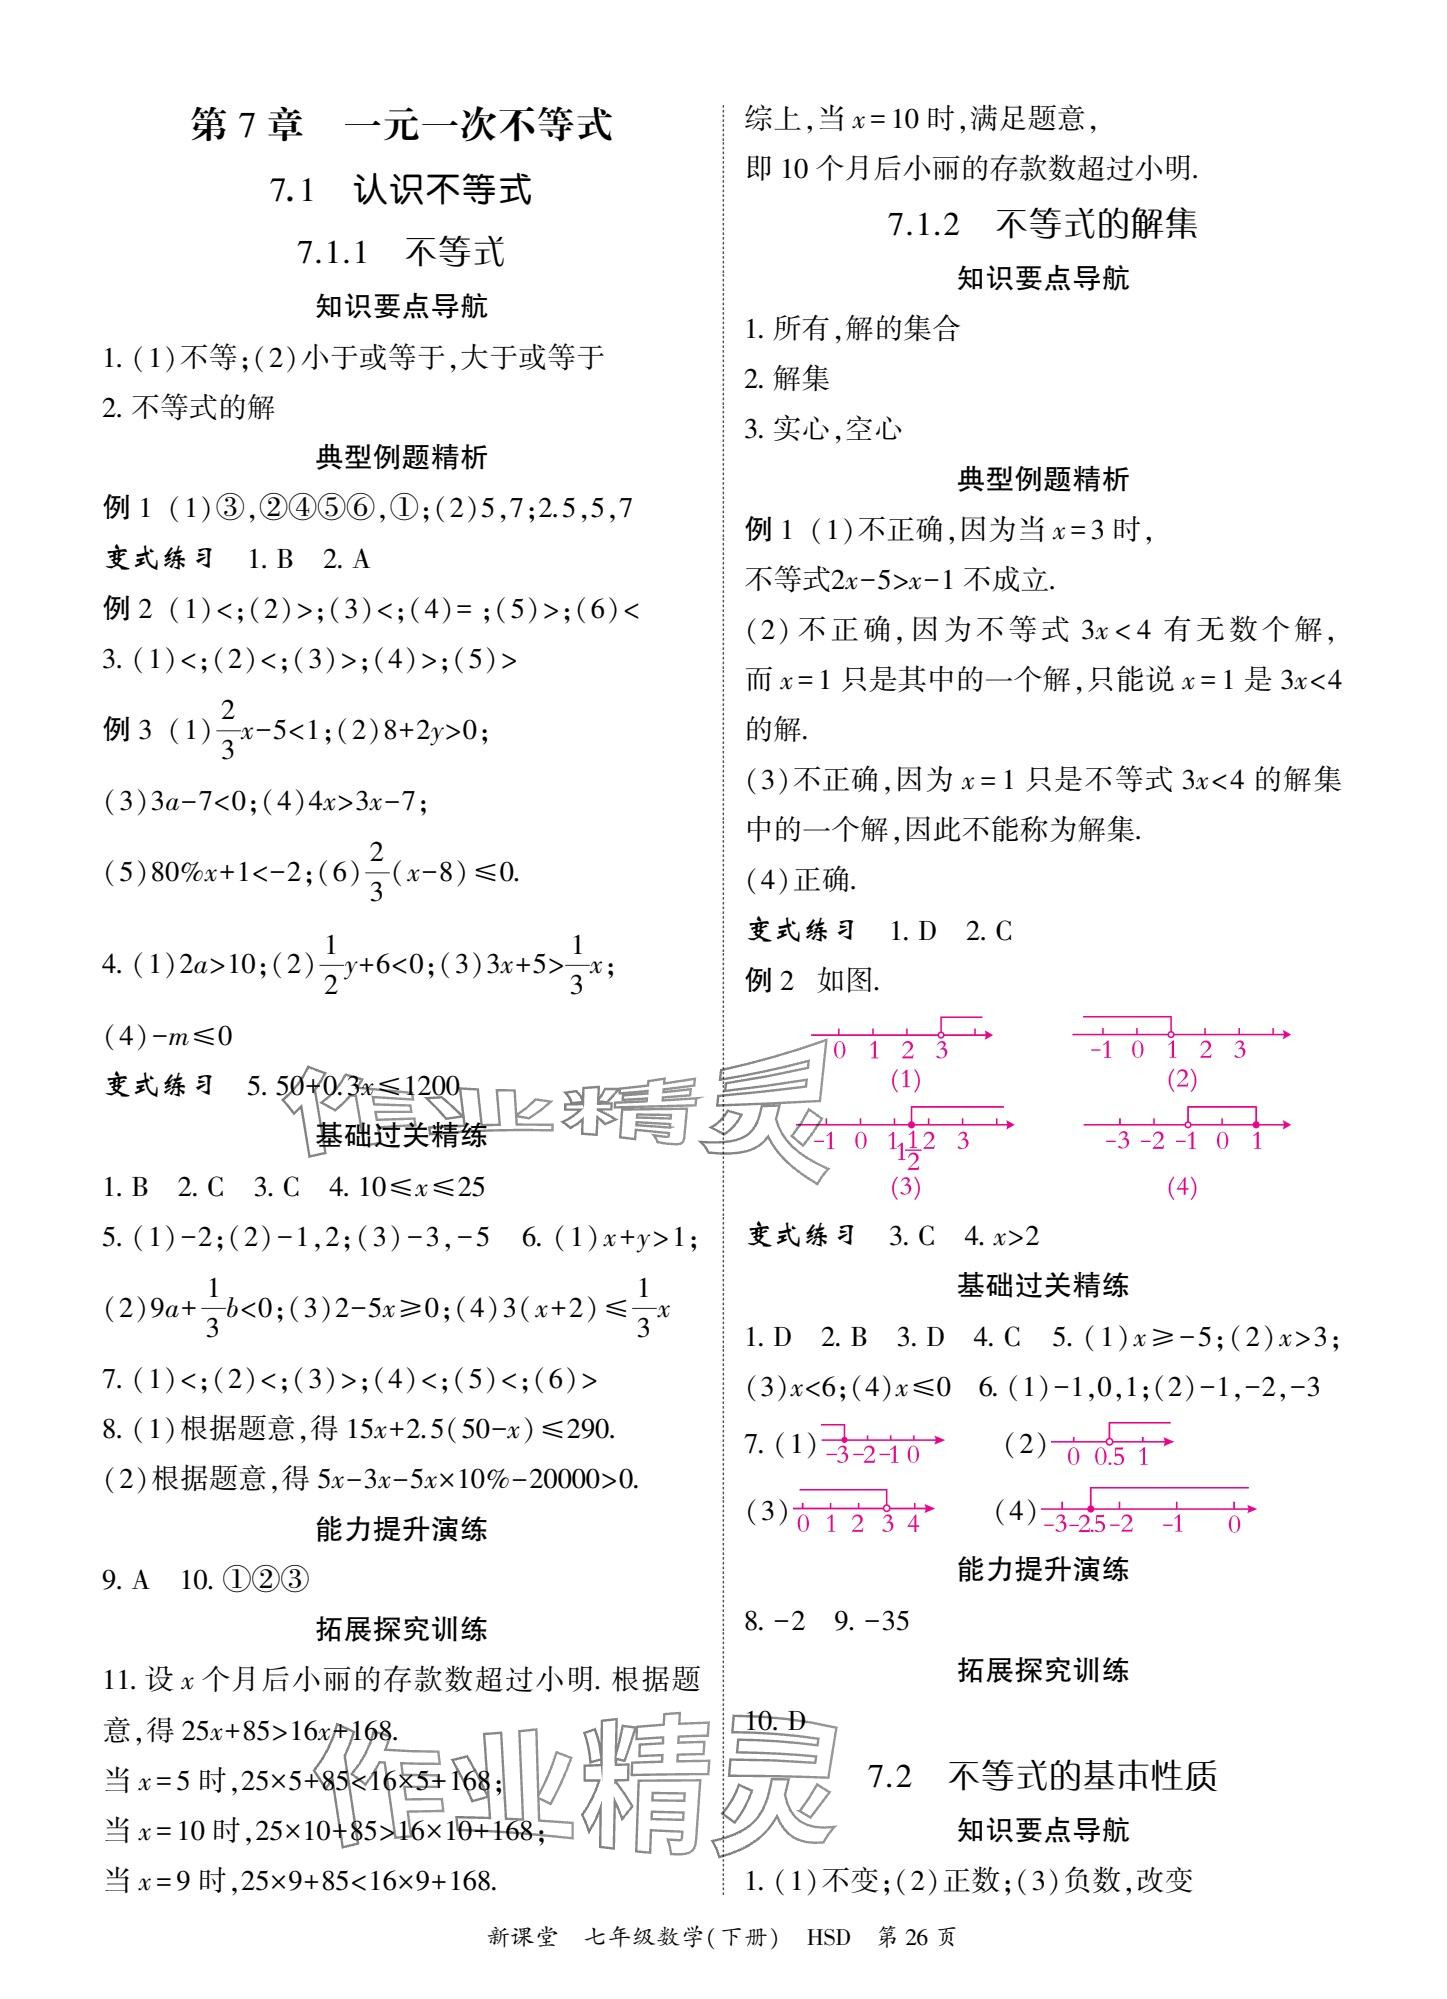 第 7 章　一元一次不等式
7.1　认识不等式
7.1.1　不等式
知识要点导航
1. (1)不等;(2)小于或等于,大于或等于
2. 不等式的解
典型例题精析
例 1 (1)③,②④⑤⑥,①;(2)5,7;2.5,5,7
变式练习　1. B　2. A
例 2 (1)<;(2)>;(3)<;(4)= ;(5)>;(6)<
3. (1)<;(2)<;(3)>;(4)>;(5)>
例 3 (1)2/3x-5<1;(2)8+2y>0;
(3)3a-7<0;(4)4x>3x-7;
(5)80%x+1<-2;(6)2/3(x-8)≤0.
4. (1)2a>10;(2)1/2y+6<0;(3)3x+5>1/3x;
(4)-m≤0
变式练习　5. 50+0.3x≤1200
基础过关精练
1. B　2. C　3. C　4. 10≤x≤25
5. (1)-2;(2)-1,2;(3)-3,-5　6. (1)x+y>1;
(2)9a+1/3b<0;(3)2-5x≥0;(4)3(x+2)≤1/3x
7. (1)<;(2)<;(3)>;(4)<;(5)<;(6)>
8. (1)根据题意,得 15x+2.5(50-x)≤290.
(2)根据题意,得 5x-3x-5x×10%-20000>0.
能力提升演练
9. A　10. ①②③
拓展探究训练
11. 设 x 个月后小丽的存款数超过小明. 根据题
意,得 25x+85>16x+168.
当 x=5 时,25×5+85<16×5+168;
当 x=10 时,25×10+85>16×10+168;
当 x=9 时,25×9+85<16×9+168.
综上,当 x=10 时,满足题意,
即 10 个月后小丽的存款数超过小明.
7.1.2　不等式的解集
知识要点导航
1. 所有,解的集合
2. 解集
3. 实心,空心
典型例题精析
例 1 (1)不正确,因为当 x=3 时,
不等式2x-5>x-1 不成立.
(2)不正确,因为不等式 3x<4 有无数个解,
而 x=1 只是其中的一个解,只能说 x=1 是 3x<4
的解.
(3)不正确,因为 x=1 只是不等式 3x<4 的解集
中的一个解,因此不能称为解集.
(4)正确.
变式练习　1. D　2. C
例 2　如图.
0 1 2 3　-1 0 1 2 3
(1)　(2)
-1 0 1 1 1/2 2 3　-3 -2 -1 0 1
(3)　(4)
变式练习　3. C　4. x>2
基础过关精练
1. D　2. B　3. D　4. C　5. (1)x≥-5;(2)x>3;
(3)x<6;(4)x≤0　6. (1)-1,0,1;(2)-1,-2,-3
7. (1) -3 -2 -1 0　(2) 0 0.5 1
(3) 0 1 2 3 4　(4) -3 -2.5 -2 -1 0
能力提升演练
8. -2　9. -35
拓展探究训练
10. D
7.2　不等式的基本性质
知识要点导航
1. (1)不变;(2)正数;(3)负数,改变
新课堂　七年级数学(下册)　HSD　第 26 页
作业精灵
作业精灵